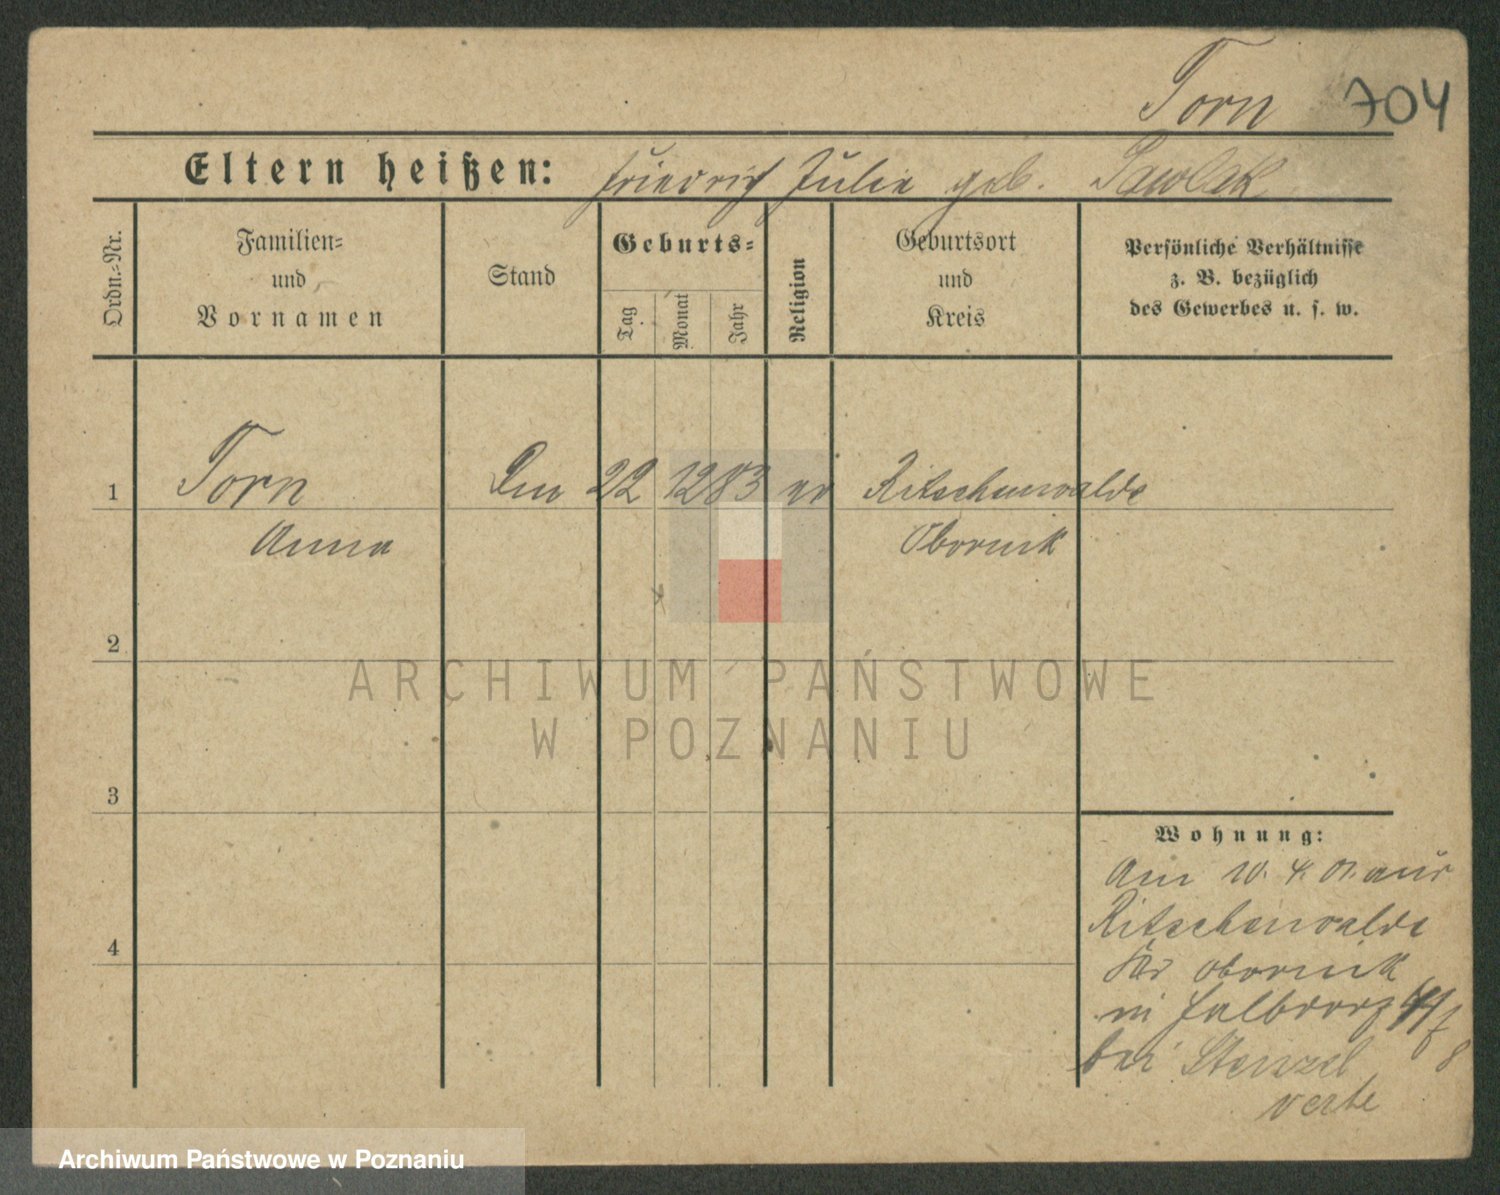 Torn 704
Eltern heißen: Friedrich Julie geb. Pawlak
Ordn.-Nr.
Familien-
und
Vornamen
Stand
Geburts-
Tag
Monat
Jahr
Religion
Geburtsort
und
Kreis
Persönliche Verhältnisse
z. B. bezüglich
des Gewerbes u. s. w.
1 Torn 22 12 83 ev Ritschenwalde
Anna Obornik
2
3
4
Wohnung:
Am 10. 4. 01. aus
Ritschenwalde
Kr Obornik
in
bei Stenzel
verte
ARCHIWUM PAŃSTWOWE
W POZNANIU
Archiwum Państwowe w Poznaniu